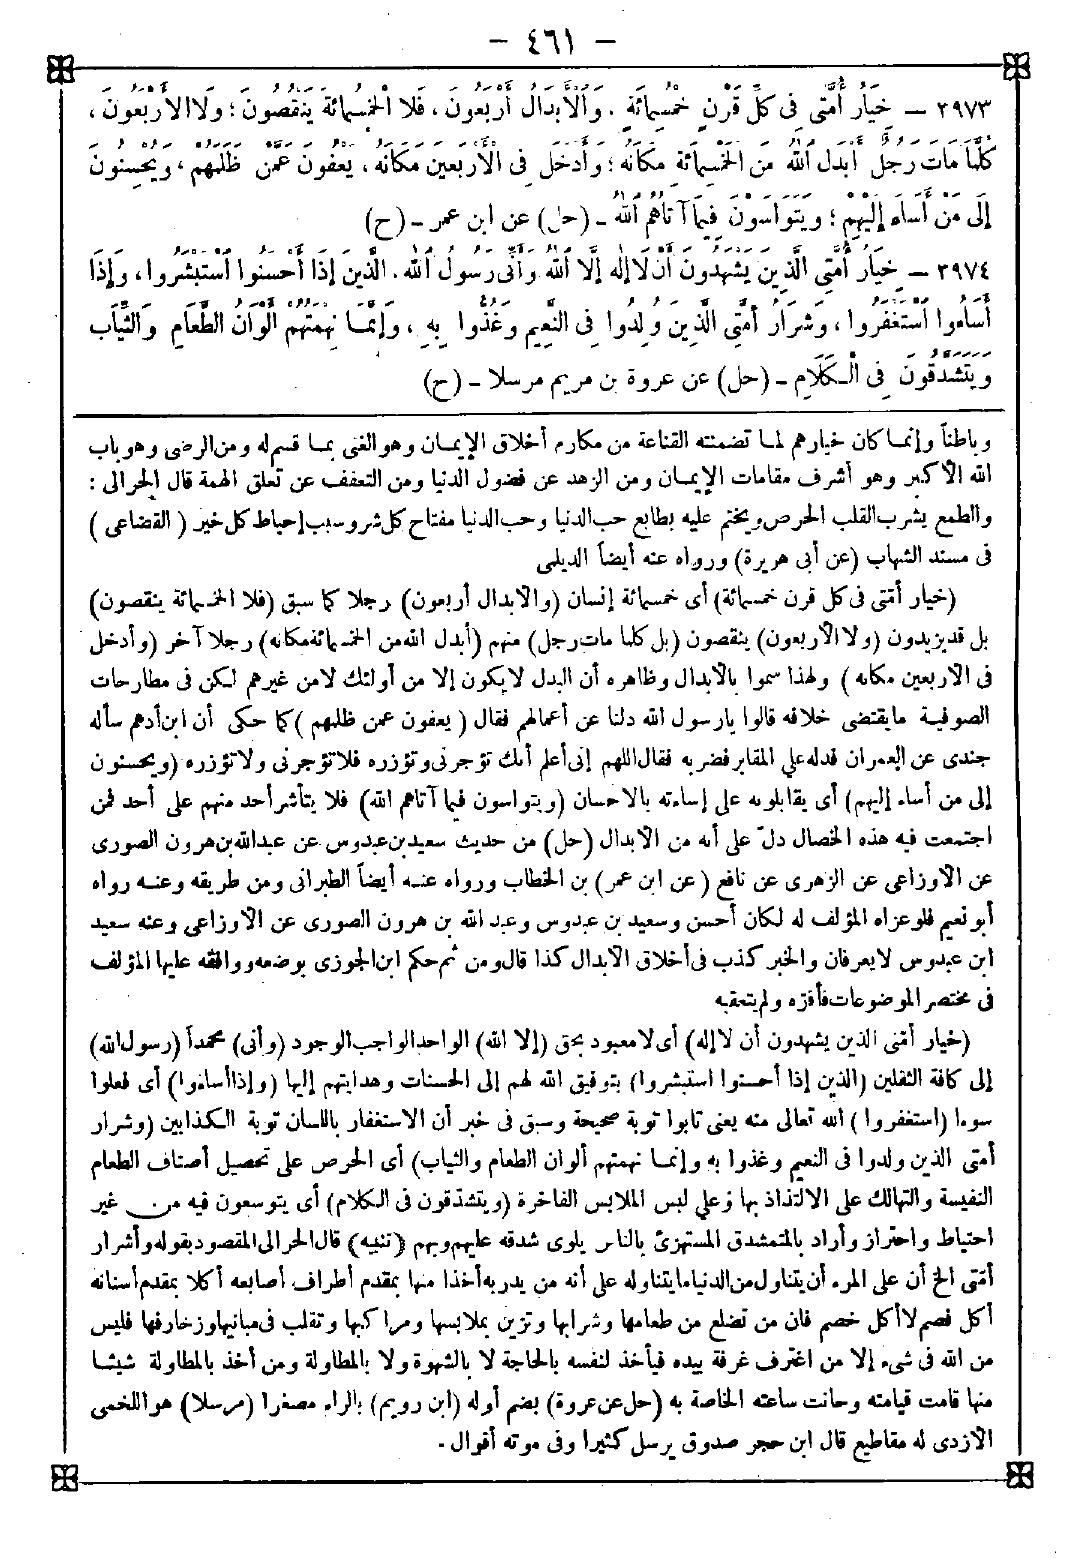 - ٤٦١ -
٣٩٧٣ - خِيَارُ أُمَّتِي فِي كُلِّ قَرْنٍ خَمْسُمِائَةٍ . وَالْأَبْدَالُ أَرْبَعُونَ ، فَلَا الْخَمْسُمِائَةِ يَنْقُصُونَ ؛ وَلَا الْأَرْبَعُونَ ،
كُلَّمَا مَاتَ رَجُلٌ أَبْدَلَ اللهُ مِنَ الْخَمْسِمِائَةِ مَكَانَهُ ؛ وَأَدْخَلَ فِي الْأَرْبَعِينَ مَكَانَهُ ، يَعْفُونَ عَمَّنْ ظَلَمَهُمْ ، وَيُحْسِنُونَ
إِلَى مَنْ أَسَاءَ إِلَيْهِمْ ؛ وَيَتَوَاسَوْنَ فِيمَا آتَاهُمُ اللهُ - (حل) عن ابن عمر - (ح)
٣٩٧٤ - خِيَارُ أُمَّتِي الَّذِينَ يَشْهَدُونَ أَنْ لَا إِلٰهَ إِلَّا اللهُ وَأَنِّي رَسُولُ اللهِ . الَّذِينَ إِذَا أَحْسَنُوا اسْتَبْشَرُوا ، وَإِذَا
أَسَاءُوا اسْتَغْفَرُوا ، وَشِرَارُ أُمَّتِي الَّذِينَ وُلِدُوا فِي النَّعِيمِ وَغُذُّوا بِهِ ، وَإِنَّمَا نَهْمَتُهُمْ أَلْوَانُ الطَّعَامِ وَالثِّيَابِ
وَيَتَشَدَّقُونَ فِي الْكَلَامِ - (حل) عن عروة بن مريم مرسلا - (ح)
وباطناً وإنما كان خيارهم لما تضمنته القناعة من مكارم أخلاق الإيمان وهو الغنى بما قسم له ومن الرضى وهو باب
الله الأكبر وهو أشرف مقامات الإيمان ومن الزهد عن فضول الدنيا ومن التعفف عن تعلق الهمة قال الحرالى :
والطمع يشرب القلب الحرص ويختم عليه بطابع حب الدنيا وحب الدنيا مفتاح كل شر وسبب إحباط كل خير (القضاعى)
فى مسند الشهاب (عن أبى هريرة) ورواه عنه أيضاً الديلمى
(خيار أمتى فى كل قرن خمسمائة) أى خمسمائة إنسان (والأبدال أربعون) رجلا كما سبق (فلا الخمسمائة ينقصون)
بل قد يزيدون (ولا الأربعون) ينقصون (بل كلما مات رجل) منهم (أبدل الله من الخمسمائة مكانه) رجلا آخر (وأدخل
فى الأربعين مكانه) ولهذا سموا بالأبدال وظاهره أن البدل لا يكون إلا من أولئك لا من غيرهم لكن فى مطارحات
الصوفية ما يقتضى خلافه قالوا يارسول الله دلنا عن أعمالهم فقال (يعفون عمن ظلمهم) كما حكى أن ابن أدهم سأله
جندى عن العمران فدله على المقابر فضربه فقال اللهم إنى أعلم أنك تؤجرنى وتؤزره فلا تؤجرنى ولا تؤزره (ويحسنون
إلى من أساء إليهم) أى يقابلونه على إساءته بالإحسان (ويتواسون فيما آتاهم الله) فلا يتأثر أحد منهم على أحد فمن
اجتمعت فيه هذه الخصال دلّ على أنه من الأبدال (حل) من حديث سعيد بن عبدوس عن عبدالله بن هرون الصورى
عن الأوزاعى عن الزهرى عن نافع (عن ابن عمر) بن الخطاب ورواه عنه أيضاً الطبرانى ومن طريقه وعنه رواه
أبو نعيم فلو عزاه المؤلف له لكان أحسن وسعيد بن عبدوس وعبد الله بن هرون الصورى عن الأوزاعى وعنه سعيد
ابن عبدوس لا يعرفان والخبر كذب فى أخلاق الأبدال كذا قال ومن ثم حكم ابن الجوزى بوضعه ووافقه عليها المؤلف
فى مختصر الموضوعات فأقرّه ولم يتعقبه
(خيار أمتى الذين يشهدون أن لا إله) أى لا معبود بحق (إلا الله) الواحد الواجب الوجود (وأنى) محمداً (رسول الله)
إلى كافة الثقلين (الذين إذا أحسنوا استبشروا) بتوفيق الله لهم إلى الحسنات وهدايتهم إليها (وإذا أساءوا) أى فعلوا
سوءا (استغفروا) الله تعالى منه يعنى تابوا توبة صحيحة وسبق فى خبر أن الاستغفار باللسان توبة الكذابين (وشرار
أمتى الذين ولدوا فى النعيم وغذوا به وإنما نهمتهم ألوان الطعام والثياب) أى الحرص على تحصيل أصناف الطعام
النفيسة والتهالك على الالتذاذ بها وعلى لبس الملابس الفاخرة (ويتشدقون فى الكلام) أى يتوسعون فيه من غير
احتياط واحتراز وأراد بالمتشدق المستهزئ بالناس يلوى شدقه عليهم وبهم (تنبيه) قال الحرالى المقصود بقوله وأشرار
أمتى الخ أن على المرء أن يتناول من الدنيا ما يتناوله على أنه من يد ربه أخذا منها بمقدم أطراف أصابعه أكلا بمقدم أسنانه
أكل قصم لا أكل خضم فان من تضلع من طعامها وشرابها وتزين بملابسها ومراكبها وتقلب فى مبانيها وزخارفها فليس
من الله فى شىء إلا من اغترف غرفة بيده فيأخذ لنفسه بالحاجة لا بالشهوة ولا بالمطاولة ومن أخذ بالمطاولة شيئا
منها قامت قيامته وحانت ساعته الخاصة به (حل عن عروة) بضم أوله (ابن رويم) بالراء مصغرا (مرسلا) هو اللخمى
الأزدى له مقاطيع قال ابن حجر صدوق يرسل كثيرا وفى موته أقوال .